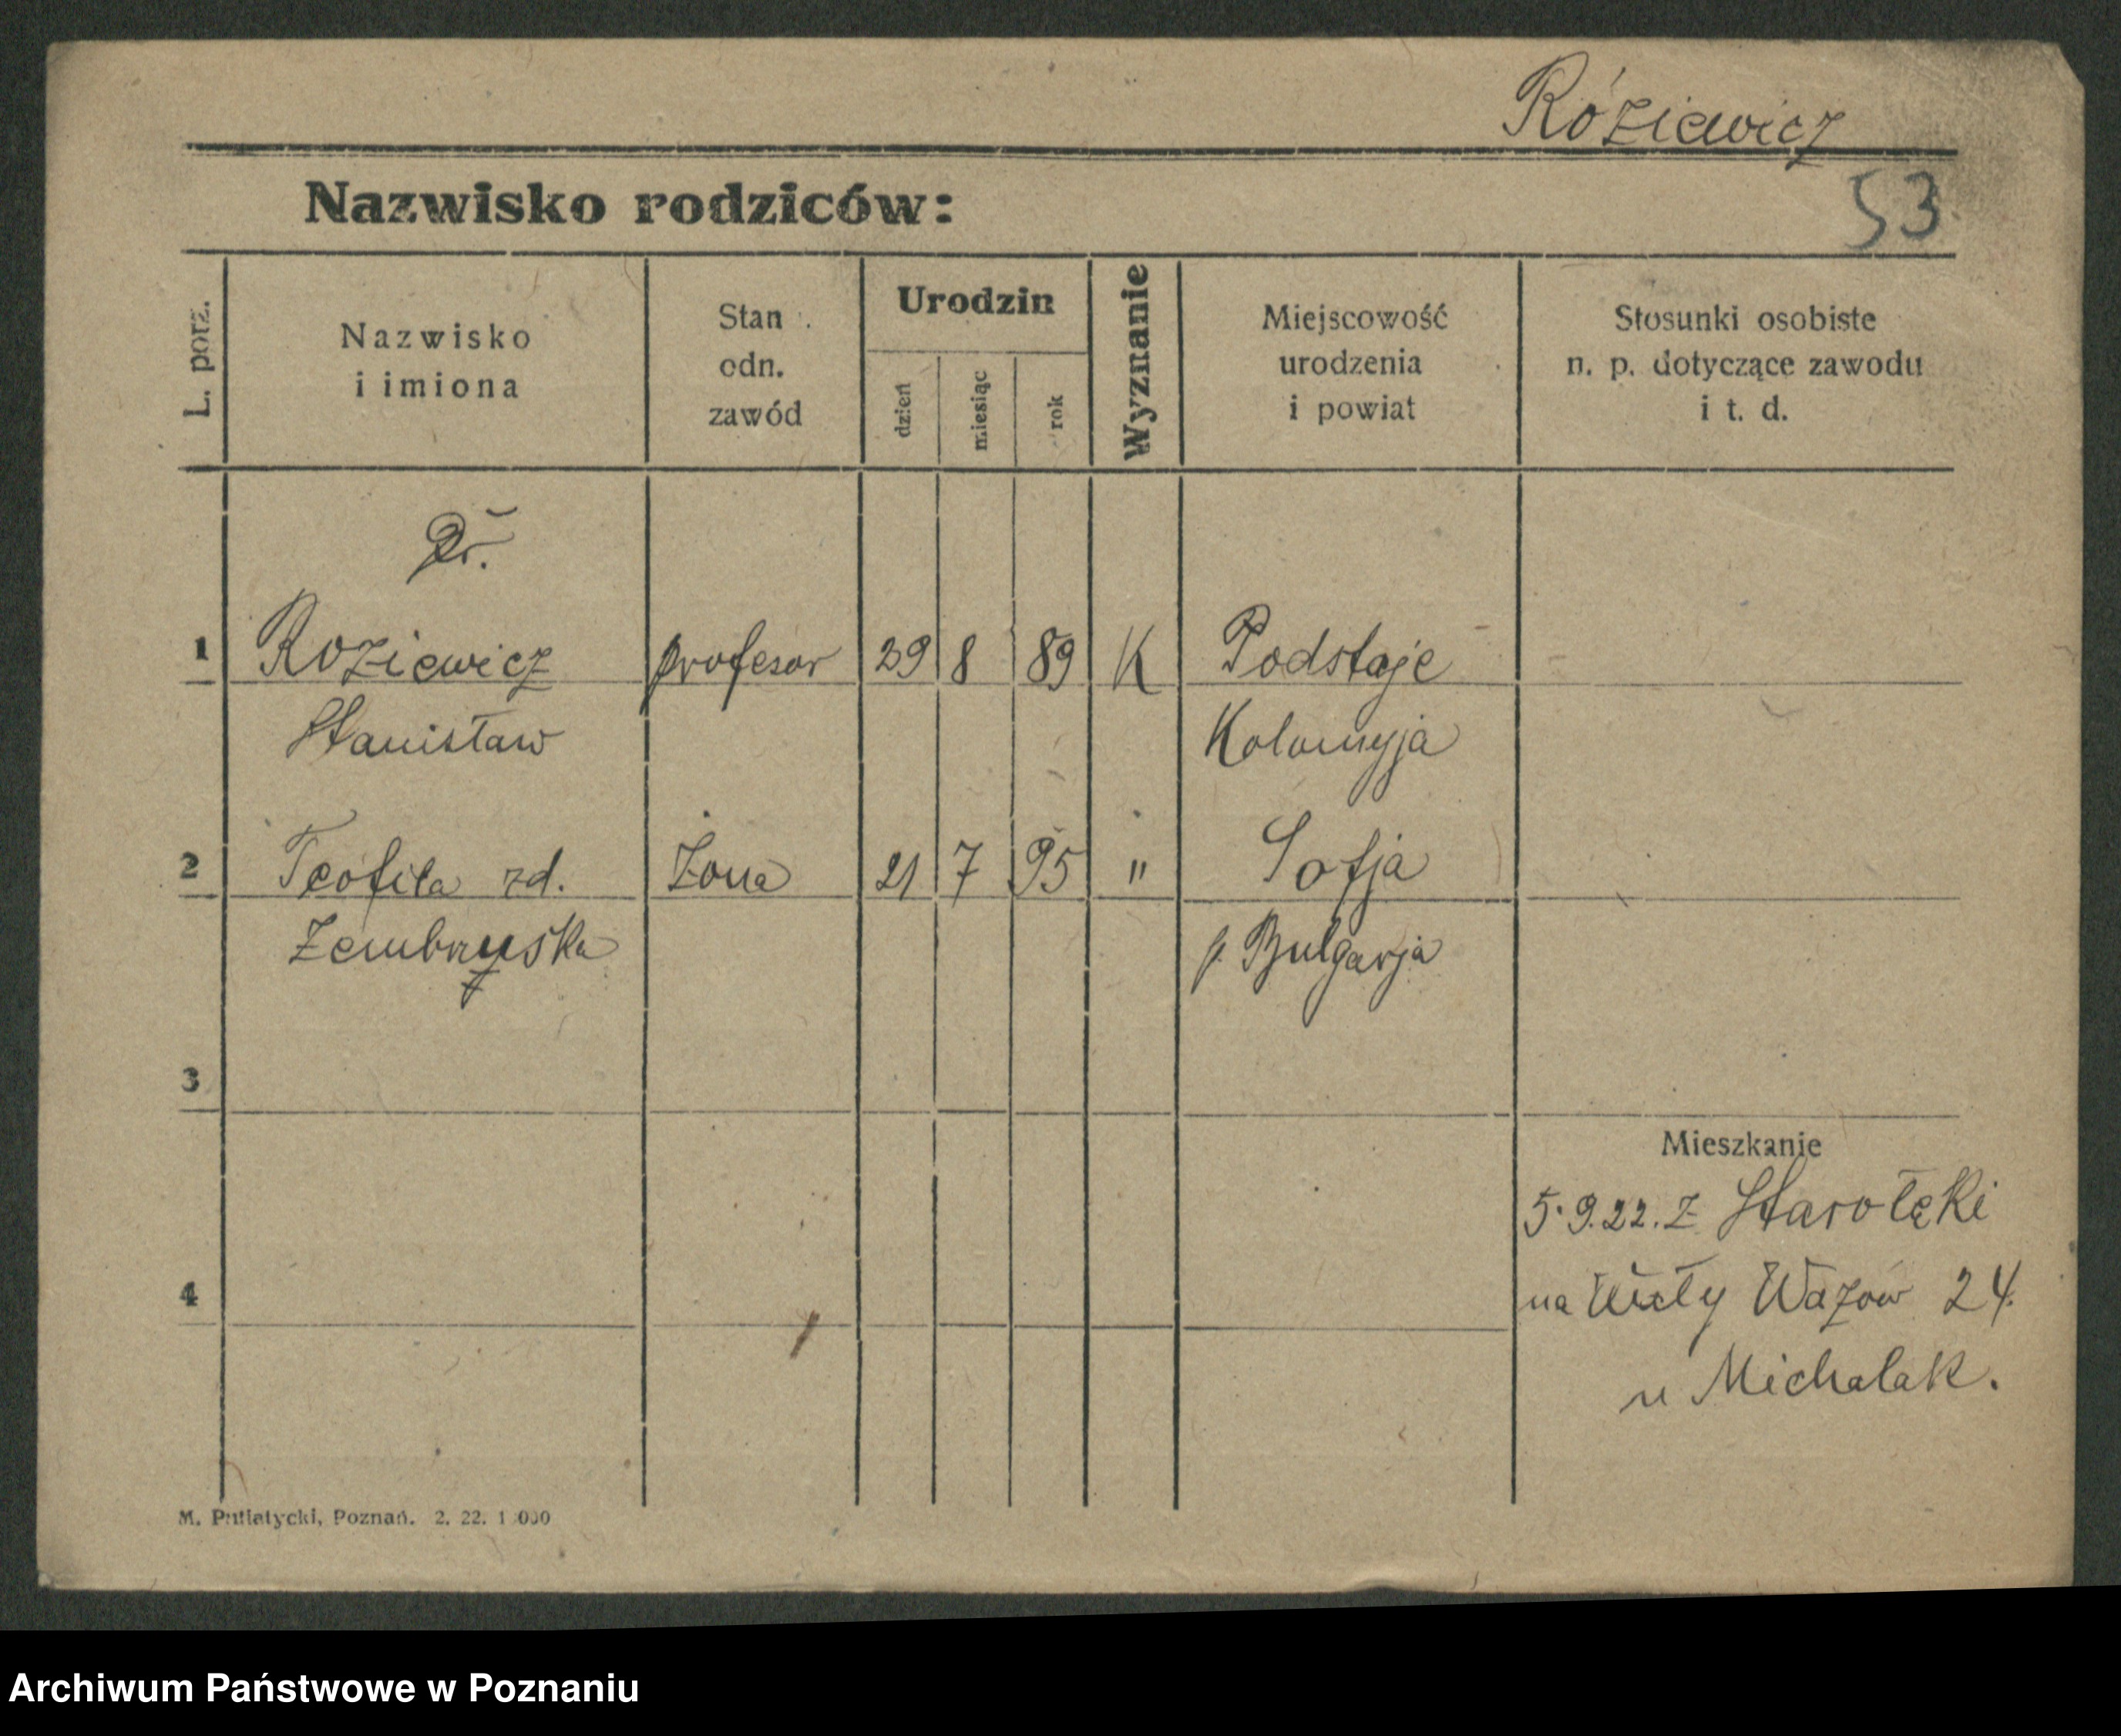 Róziewicz
Nazwisko rodziców:
53
L. porz.
Nazwisko
i imiona
Stan
odn.
zawód
Urodzin
dzień
miesiąc
rok
Wyznanie
Miejscowość
urodzenia
i powiat
Stosunki osobiste
n. p. dotyczące zawodu
i t. d.
1 Roziewicz profesor 29 8 89 K Podstaje
Stanisław Kolomyja
2 Teofila zd. Żona 21 7 95 " Sofja
Zembrzuska p. Bulgarja
3
Mieszkanie
5.9.22. z Starołęki
4
na Wały Wazów 24.
u Michalak.
M. Putiatycki, Poznań. 2. 22. 1 000
Archiwum Państwowe w Poznaniu